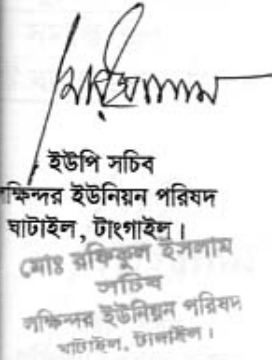 ইউপি সচিব
ক্ষিন্দর ইউনিয়ন পরিষদ
ঘাটাইল, টাংগাইল।
মোঃ রফিকুল ইসলাম
সচিব
লক্ষিন্দর ইউনিয়ন পরিষদ
ঘাটাইল, টাঙ্গাইল।